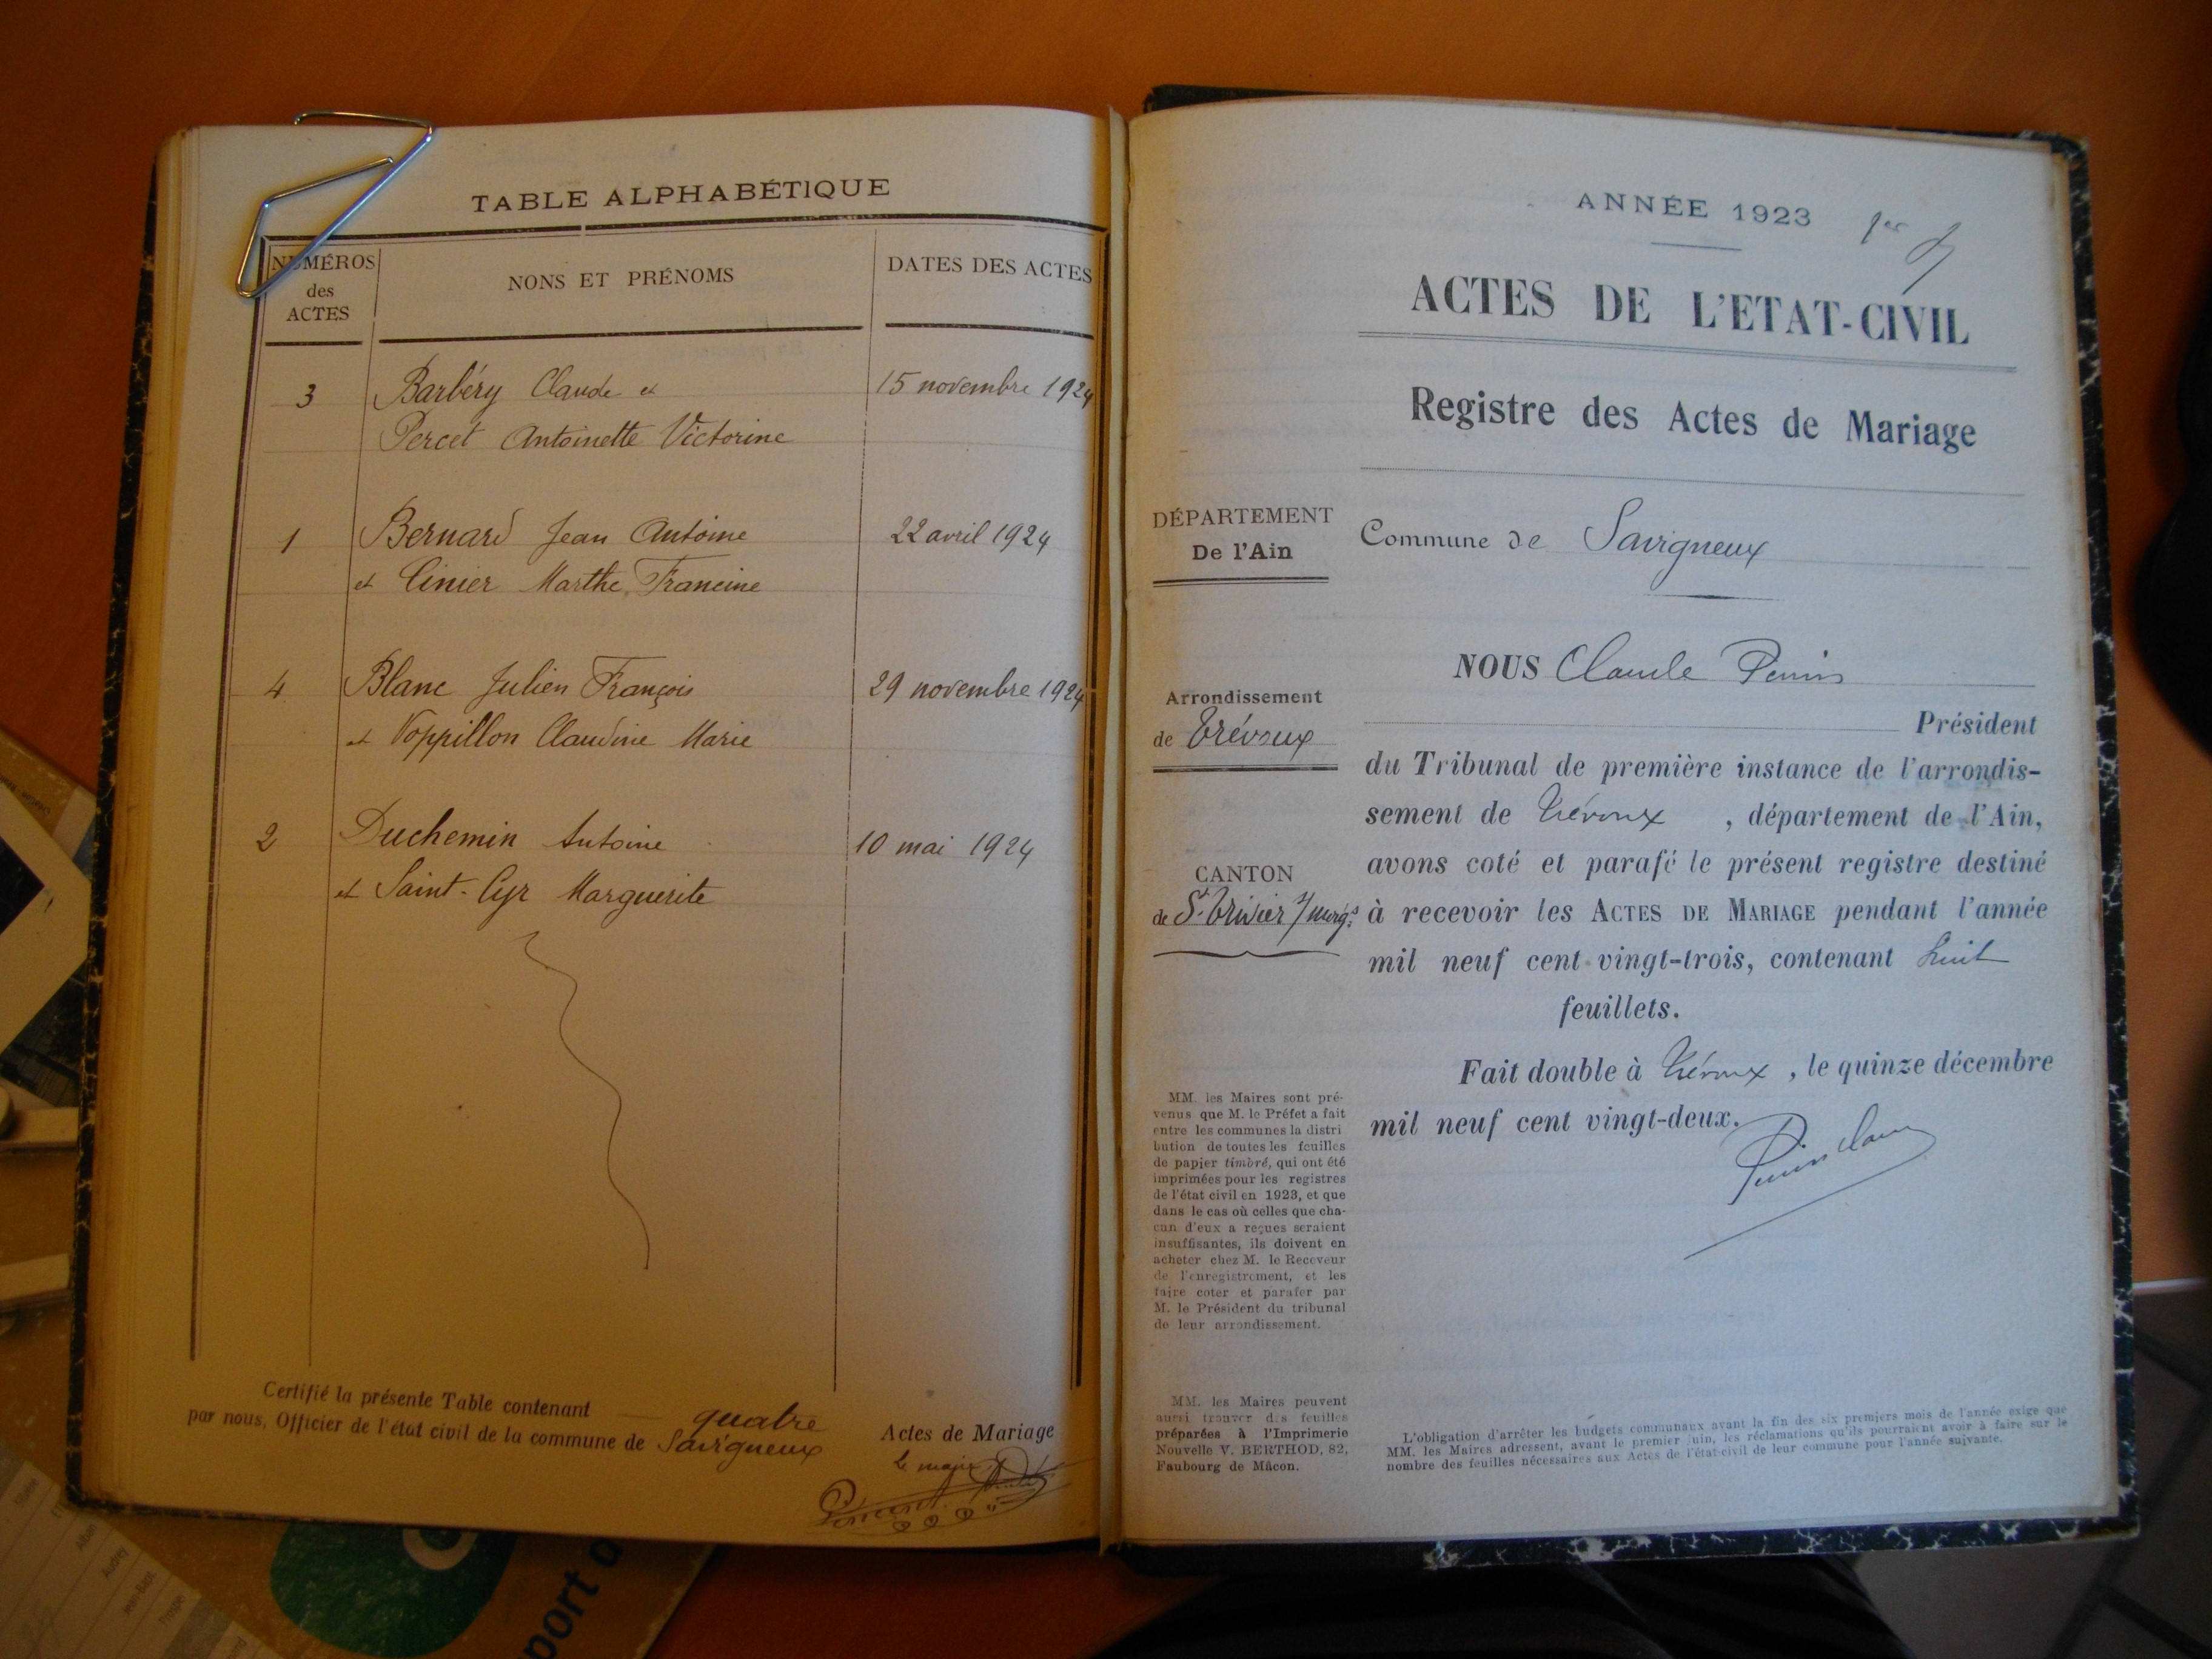 TABLE ALPHABÉTIQUE
NUMÉROS
des
ACTES
NONS ET PRÉNOMS
DATES DES ACTES
3 Barbéry Claude et 15 novembre 1924
Percet Antoinette Victorine
1 Bernard Jean Antoine 22 avril 1924
et Cinier Marthe Francine
4 Blanc Julien François 29 novembre 1924
et Voppillon Claudine Marie
2 Duchemin Antoine 10 mai 1924
et Saint-Cyr Marguerite
Certifié la présente Table contenant quatre Actes de Mariage
par nous, Officier de l'état civil de la commune de Savigneux
le maire
ANNÉE 1923
ACTES DE L'ETAT-CIVIL
Registre des Actes de Mariage
DÉPARTEMENT
De l'Ain
Commune de Savigneux
Arrondissement
de Trévoux
CANTON
de St Trivier s/ 
NOUS Claude
Président
du Tribunal de première instance de l'arrondis-
sement de Trévoux , département de l'Ain,
avons coté et parafé le présent registre destiné
à recevoir les ACTES DE MARIAGE pendant l'année
mil neuf cent vingt-trois, contenant huit
feuillets.
Fait double à Trévoux , le quinze décembre
mil neuf cent vingt-deux.
MM. les Maires sont pré-
venus que M. le Préfet a fait
entre les communes la distri
bution de toutes les feuilles
de papier timbré, qui ont été
imprimées pour les registres
de l'état civil en 1923, et que
dans le cas où celles que cha-
cun d'eux a reçues seraient
insuffisantes, ils doivent en
acheter chez M. le Receveur
de l'enregistrement, et les
faire coter et parafer par
M. le Président du tribunal
de leur arrondissement.
MM. les Maires peuvent
aussi trouver des feuilles
préparées à l'Imprimerie
Nouvelle V. BERTHOD, 82,
Faubourg de Mâcon.
L'obligation d'arrêter les budgets communaux avant la fin des six premiers mois de l'année exige que
MM. les Maires adressent, avant le premier juin, les réclamations qu'ils pourraient avoir à faire sur le
nombre des feuilles nécessaires aux Actes de l'état-civil de leur commune pour l'année suivante.
Alban
Audrey
port